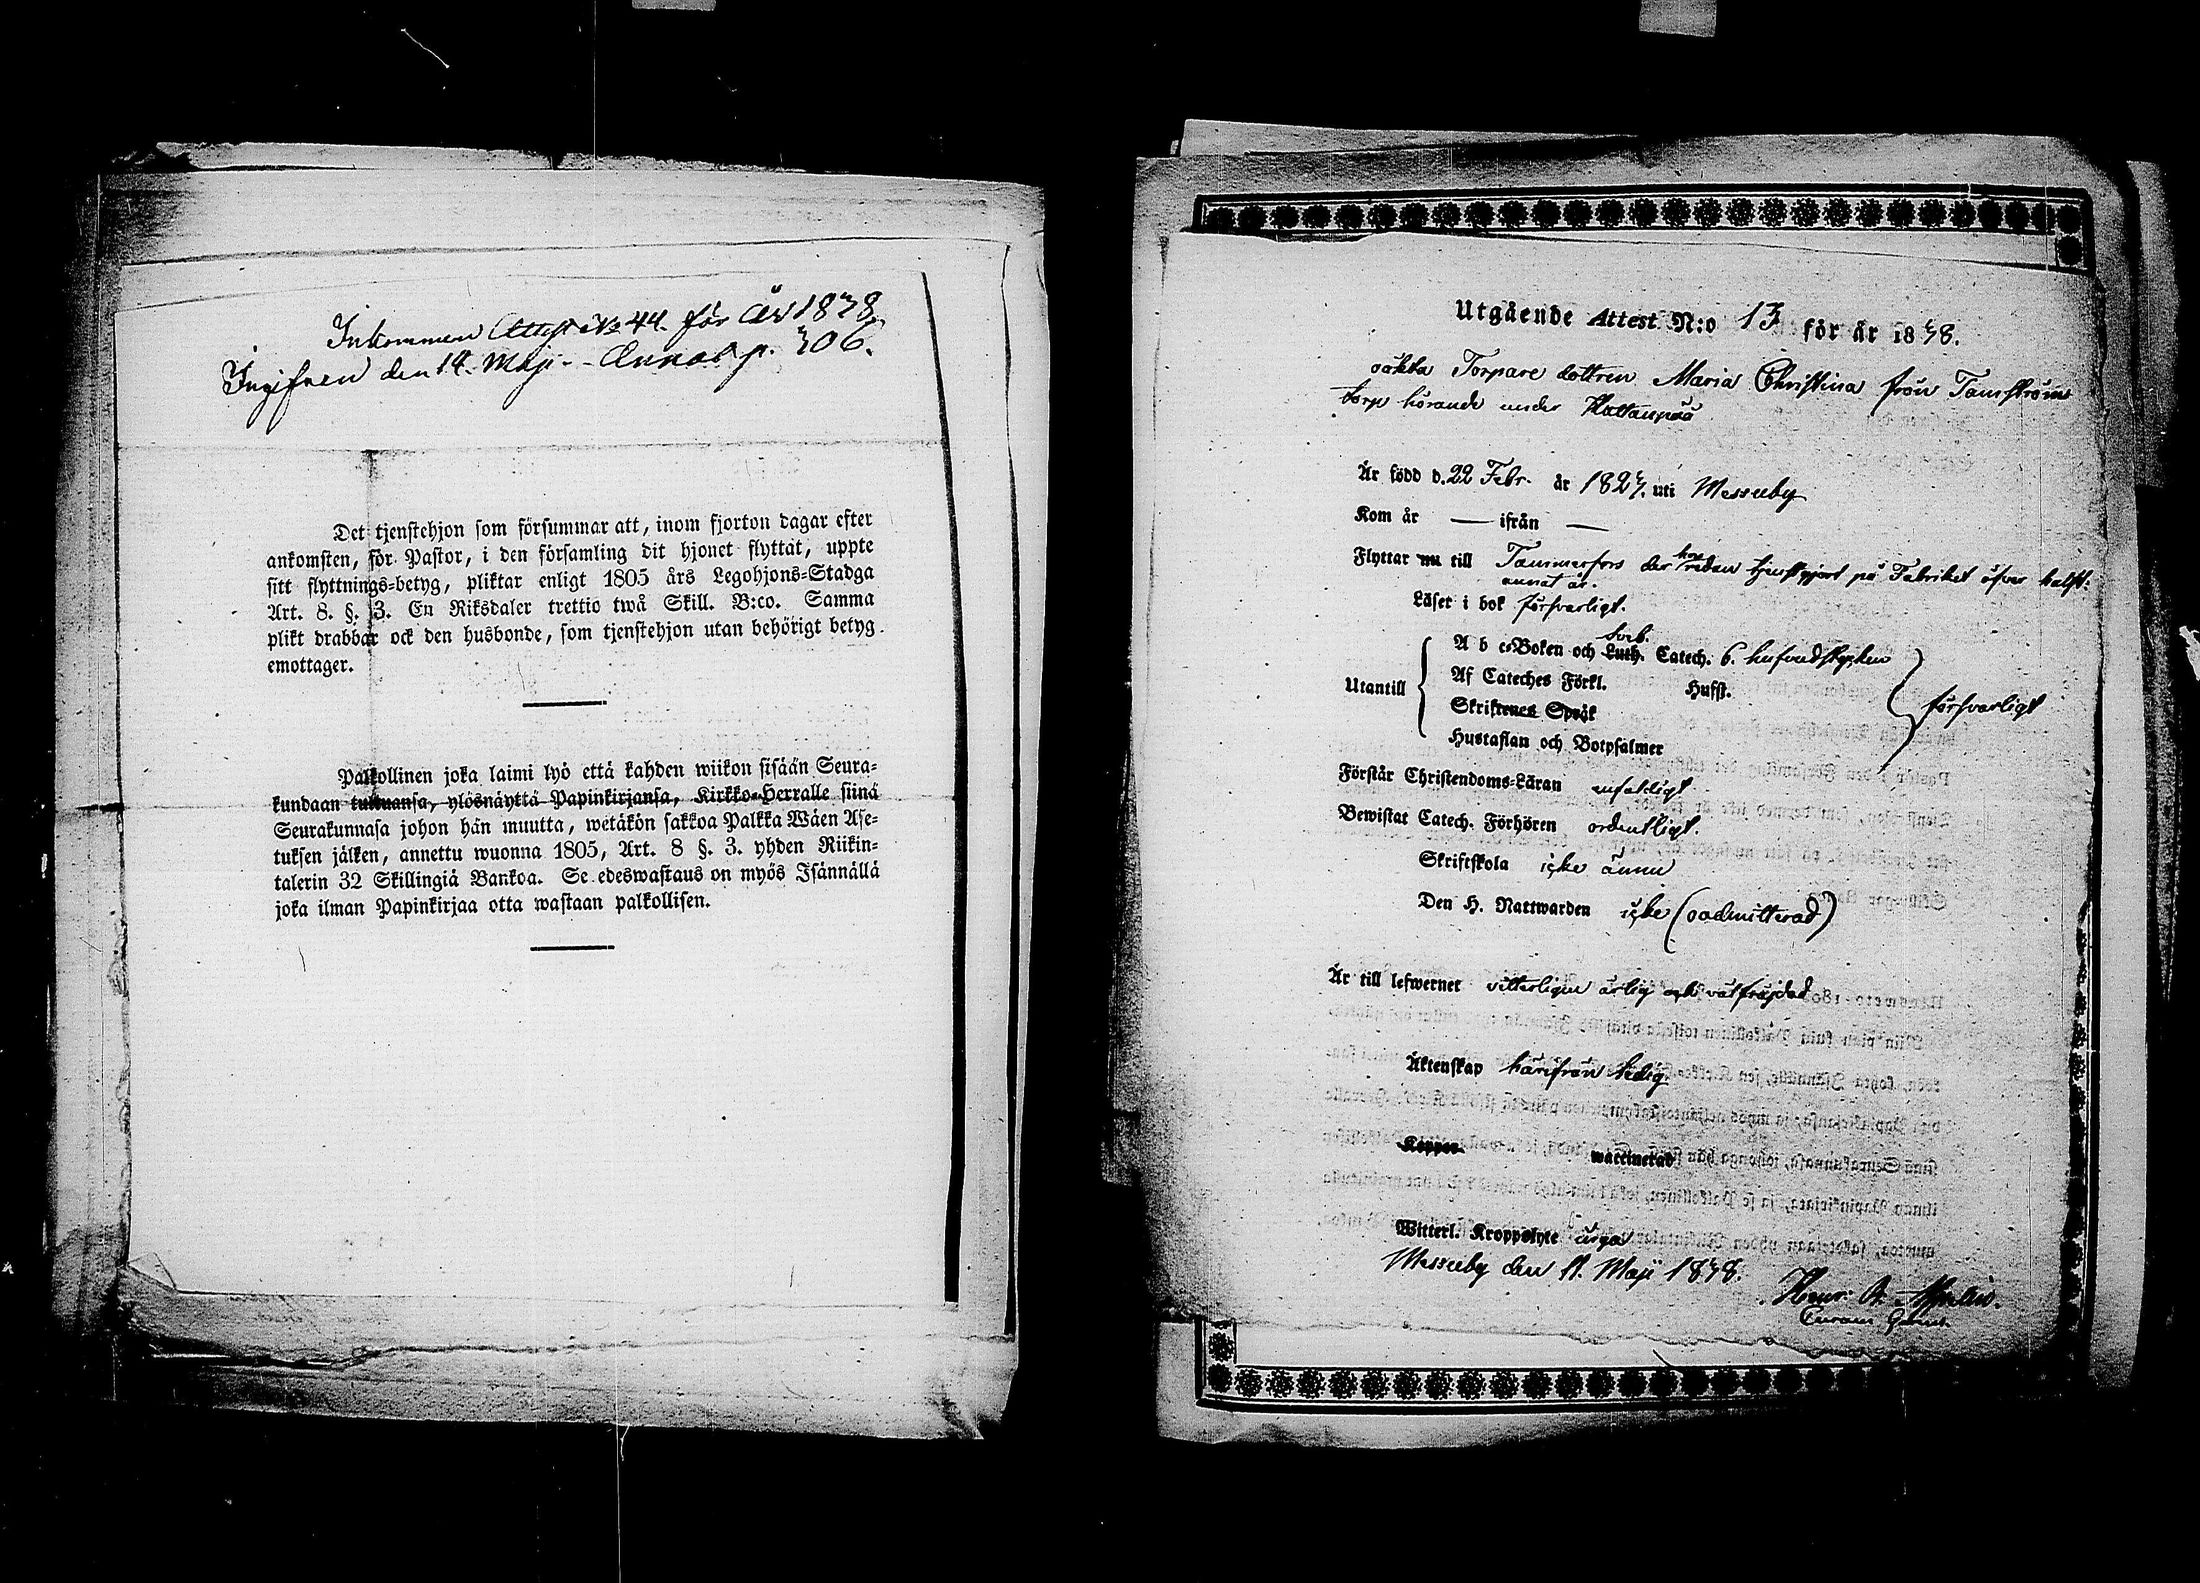 Inkommen Attest No 44. för År 1838.
Ingifven den 14. Maji. - p. 306.
Det tjenstehjon som försummar att, inom fjorton dagar efter
ankomsten, för Pastor, i den församling dit hjonet flyttat, uppte
sitt flyttnings-betyg, pliktar enligt 1805 års Legohjons-Stadga
Art. 8. §. 3. En Riksdaler trettio twå Skill. B:co. Samma
plikt drabbar ock den husbonde, som tjenstehjon utan behörigt betyg
emottager.
Palkollinen joka laimi lyö että kahden wiikon sisään Seura-
kundaan tultuansa, ylösnäyttä Papinkirjansa, Kirkko-Herralle siinä
Seurakunnasa johon hän muutta, wetäkön sakkoa Palkka Wäen Ase-
tuksen jälken, annettu wuonna 1805, Art. 8 §. 3. yhden Riikin-
talerin 32 Skillingiä Bankoa. Se edeswastaus on myös Isännällä
joka ilman Papinkirjaa otta wastaan palkollisen.
Utgående Attest N:o 13 för år 1838.
oäkta Torpare dottren Maria Christina från Tamströms
torp hörande under Hattanpää
Är född d. 22 Febr. år 1827. uti Messuby
Kom år — ifrån —
Flyttar nu till Tammerfors der hon redan tjenstgjort på Fabriket öfver halft.
annat år.
Läser i bok försvarligt.
A b c-Boken och Luth. Sveb. Catech. 6. hufvudstycken
Utantill Af Cateches Förkl. Hufst.
Skriftenes Språk försvarligt
Hustaflan och Botpsalmer
Förstår Christendoms-Läran enfaldigt
Bewistat Catech. Förhören ordentligt.
Skriftskola icke ännu
Den H. Nattwarden icke (oadmitterad)
Är till lefwernet vitterligen ärlig och välfräjdad
Äktenskap härifrån ledig.
Koppor waccinerad
Witterl. Kroppslyte inga
Messuby den 11. Maji 1838.
Henr. A.